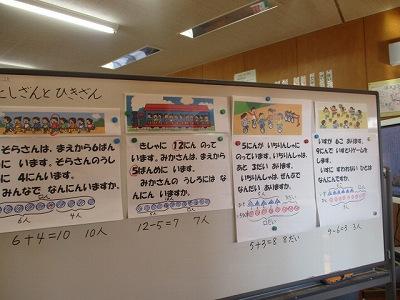 たしざんと ひきざん
そらさんは、まえから6ばん
に います。そらさんのうし
に 4にんいます。
みんなで なんにんいますか。
6人
4人
6+4=10 10人
きしゃに 12にん のって
います。みかさんは、まえから
5ばんめに います。
みかさんの うしろには な
んにん いますか。
12-5=7 7人
5にんが いちりんしゃに
のっています。いちりんしゃは、
あと 3だい あります。
いちりんしゃは、ぜんぶで
なんだい ありますか。
5+3=8 8だい
いすが 6こ あります。
9にんで いすとりゲームを
します。
いすに すわれない ひとは
なんにんですか。
9-6=3 3人